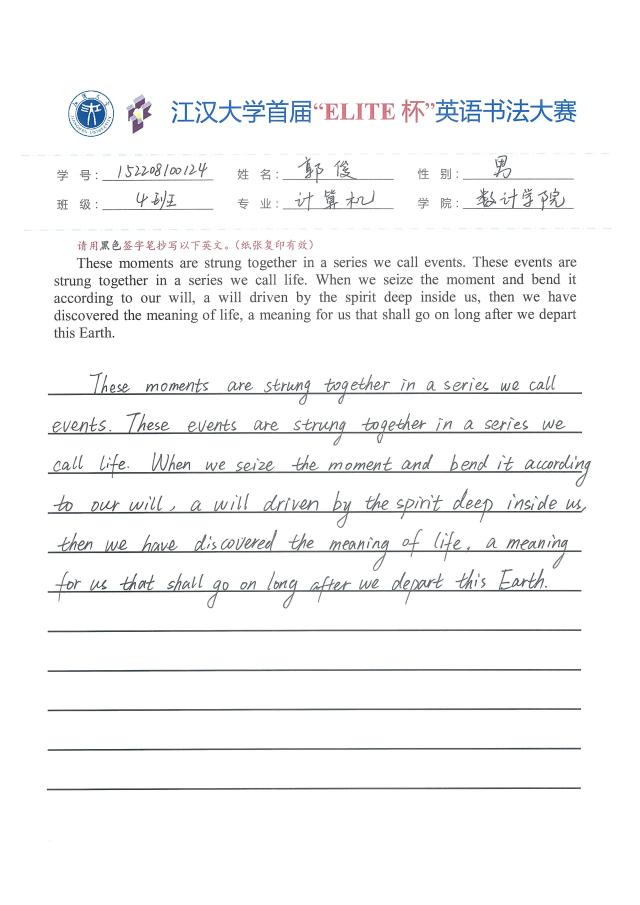 江汉大学首届“ELITE 杯”英语书法大赛
学 号：152208100124 姓 名：郭俊 性 别：男
班 级：4班 专 业：计算机 学 院：数计学院
请用黑色签字笔抄写以下英文。（纸张复印有效）
These moments are strung together in a series we call events. These events are
strung together in a series we call life. When we seize the moment and bend it
according to our will, a will driven by the spirit deep inside us, then we have
discovered the meaning of life, a meaning for us that shall go on long after we depart
this Earth.
These moments are strung together in a series we call
events. These events are strung together in a series we
call life. When we seize the moment and bend it according
to our will, a will driven by the spirit deep inside us,
then we have discovered the meaning of life, a meaning
for us that shall go on long after we depart this Earth.